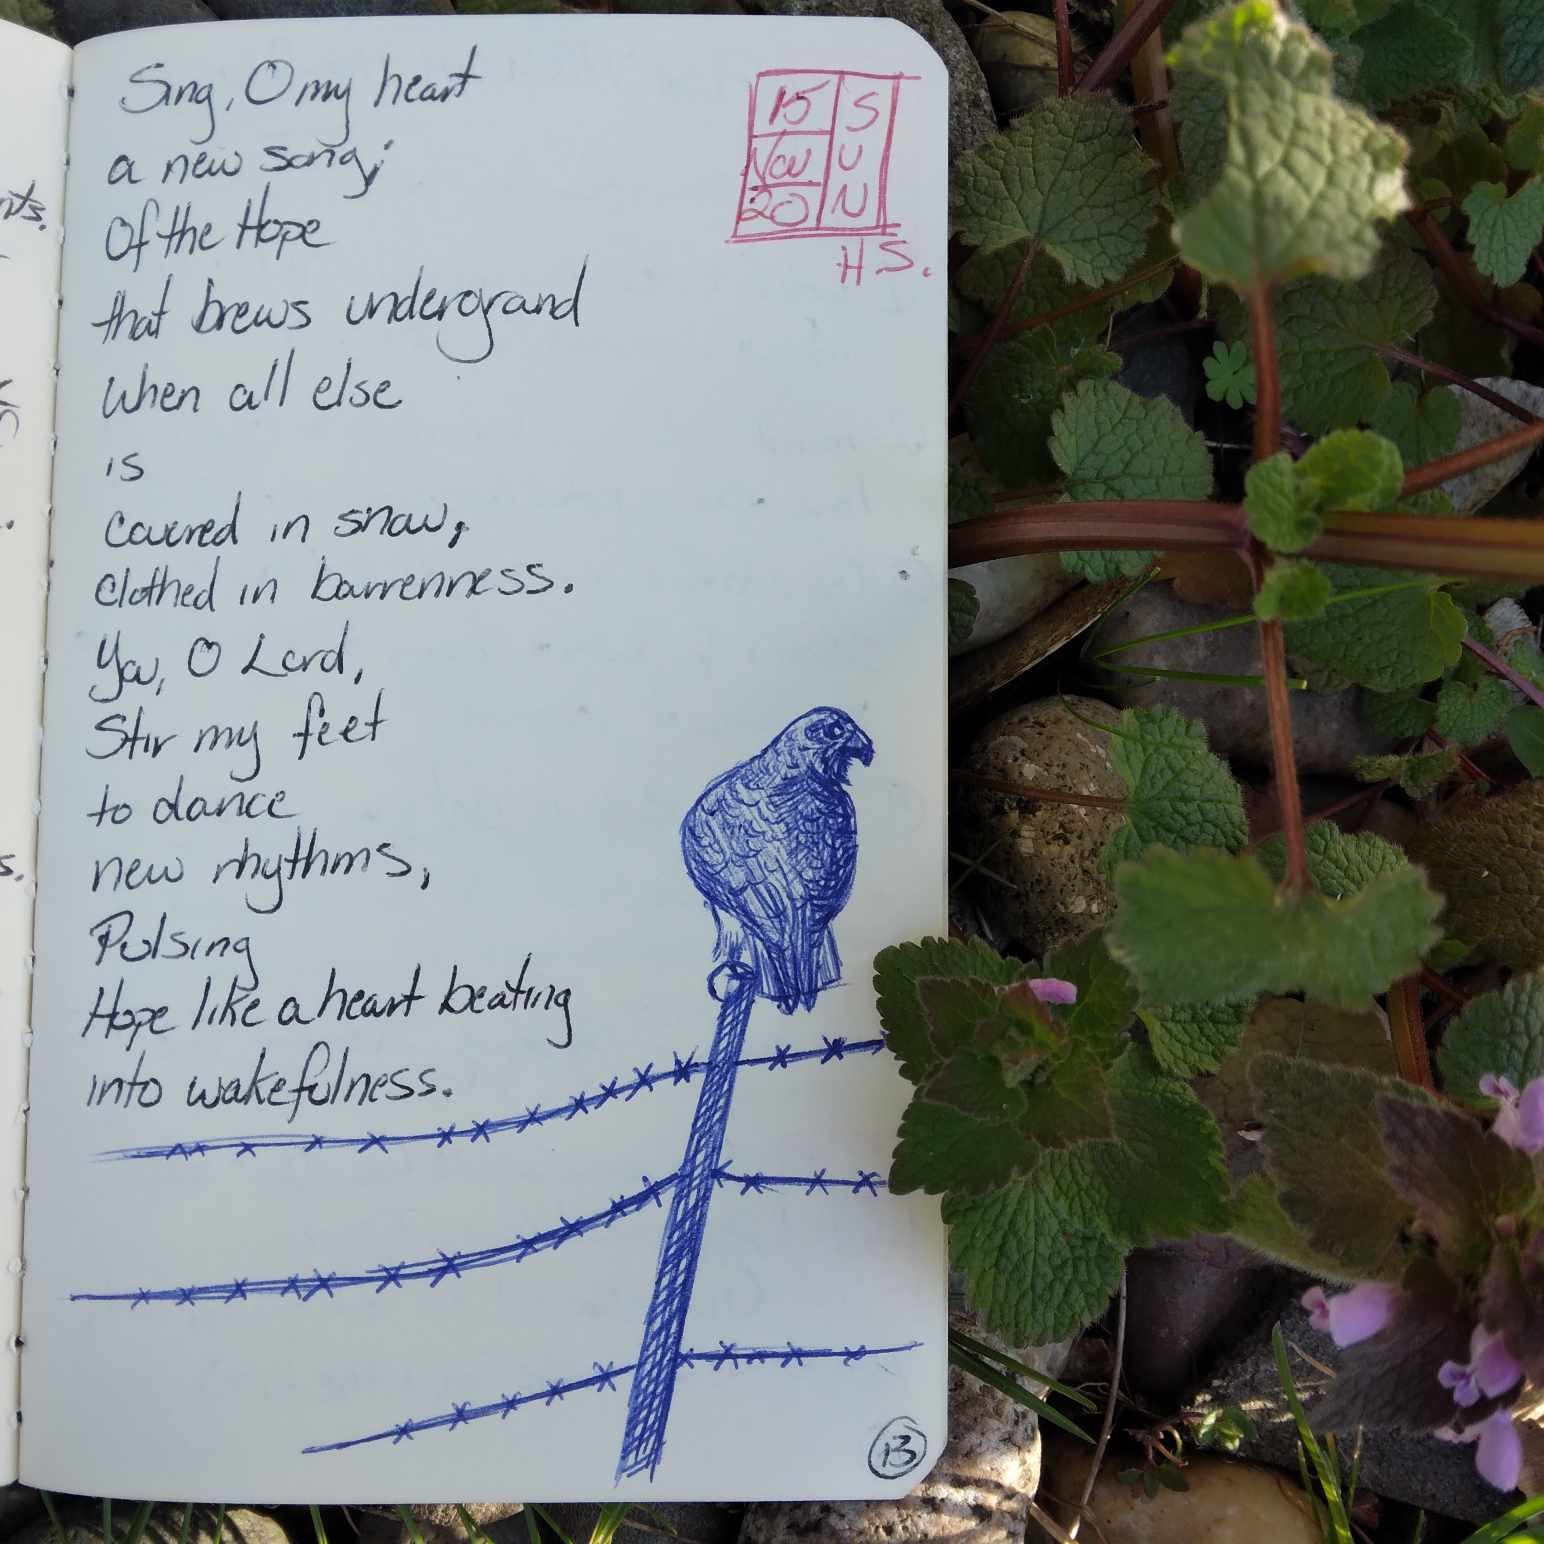 Sing, O my heart
a new song;
Of the Hope
that brews underground
When all else
is
covered in snow,
clothed in barrenness.
You, O Lord,
Stir my feet
to dance
new rhythms,
Pulsing
Hope like a heart beating
into wakefulness.
15
Nov
20
SUN
HS.
13